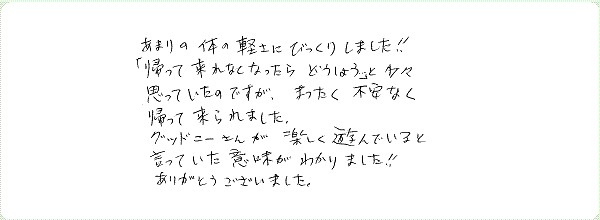 あまりの体の軽さにびっくりしました!!
「帰って来れなくなったらどうしよう」と多々
思っていたのですが、まったく不安なく
帰って来られました。
グッドニーさんが楽しく遊んでいると
言っていた意味がわかりました!!
ありがとうございました。